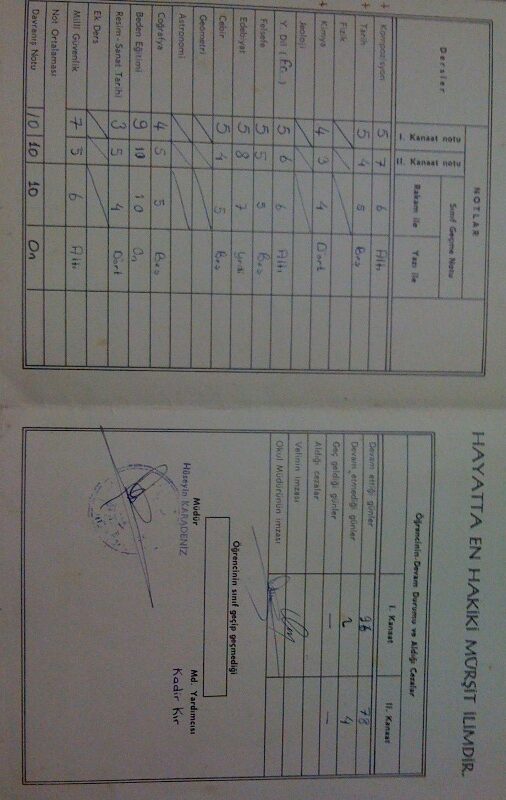 NOTLAR
Dersler
I. Kanaat notu
II. Kanaat notu
Sınıf Geçme Notu
Rakamı ile
Yazı ile
+ Kompozisyon 5 7 6 Altı
+ Tarih 5 4 5 Beş
Fizik
+ Kimya 4 3 4 Dört
Jeoloji
Y. Dil ( ) 5 6 6 Altı
Felsefe 5 5 5 Beş
Edebiyat 5 8 7 Yedi
Cebir 5 4 5 Beş
Geometri
Astronomi
Coğrafya 4 5 5 Beş
Beden Eğitimi 9 10 10 On
Resim-Sanat Tarihi 3 5 4 Dört
Ek Ders
Milli Güvenlik 7 5 6 Altı
Not Ortalaması
Davranış Notu 10 10 10 On
HAYATTA EN HAKİKİ MÜRŞİT İLİMDİR.
Öğrencinin Devam Durumu ve Aldığı Cezalar
I. Kanaat II. Kanaat
Devam ettiği günler 96 78
Devam etmediği günler 2 4
Geç geldiği günler — —
Aldığı cezalar
Velinin imzası
Okul Müdürünün imzası
Öğrencinin sınıf geçip geçmediği
Müdür Md. Yardımcısı
Hüseyin KARADENİZ Kadir Kır